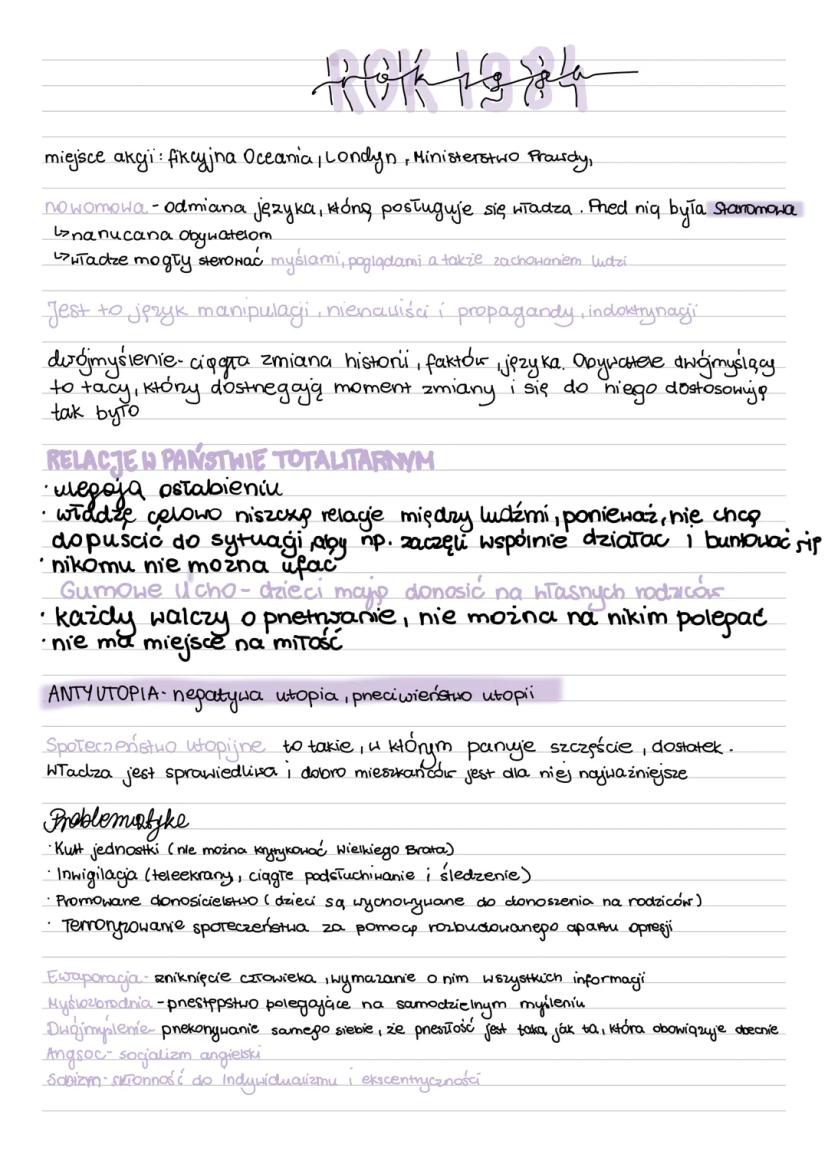 ROK 1984
rok 1984
miejsce akcji: fikcyjna Oceania, Londyn, Ministerstwo Prawdy,
nowomowa - odmiana języka, którą posługuje się władza. Przed nią była staromowa
↳ narzucana obywatelom
↳ władze mogły sterować myślami, poglądami a także zachowaniem ludzi
Jest to język manipulacji, nienawiści i propagandy, indoktrynacji
dwójmyślenie - ciągła zmiana historii, faktów, języka. Obywatele dwójmyślący
to tacy, którzy dostrzegają moment zmiany i się do niego dostosowują
tak było
RELACJE W PAŃSTWIE TOTALITARNYM
· ulegają osłabieniu
· władzę celowo niszczą relacje między ludźmi, ponieważ, nie chcą
dopuścić do sytuacji, aby np. zaczęli wspólnie działać i buntować się
· nikomu nie można ufać
Gumowe Ucho - dzieci mają donosić na własnych rodziców
· każdy walczy o przetrwanie, nie można na nikim polegać
· nie ma miejsce na miłość
ANTYUTOPIA - negatywa utopia, przeciwieństwo utopii
Społeczeństwo utopijne to takie, w którym panuje szczęście, dostatek.
Władza jest sprawiedliwa i dobro mieszkańców jest dla niej najważniejsze
Problematyka
· Kult jednostki (nie można krytykować Wielkiego Brata)
· Inwigilacja (teleekrany, ciągłe podsłuchiwanie i śledzenie)
· Promowane donosicielstwo (dzieci są wychowywane do donoszenia na rodziców)
· Terroryzowanie społeczeństwa za pomocą rozbudowanego aparatu opresji
Ewaporacja - zniknięcie człowieka, wymazanie o nim wszystkich informacji
Myślozbrodnia - przestępstwo polegające na samodzielnym myśleniu
Dwójmyślenie - przekonywanie samego siebie, że przeszłość jest taka, jak ta, która obowiązuje obecnie
Angsoc - socjalizm angielski
Sobizm - skłonność do Indywidualizmu i ekscentryczności